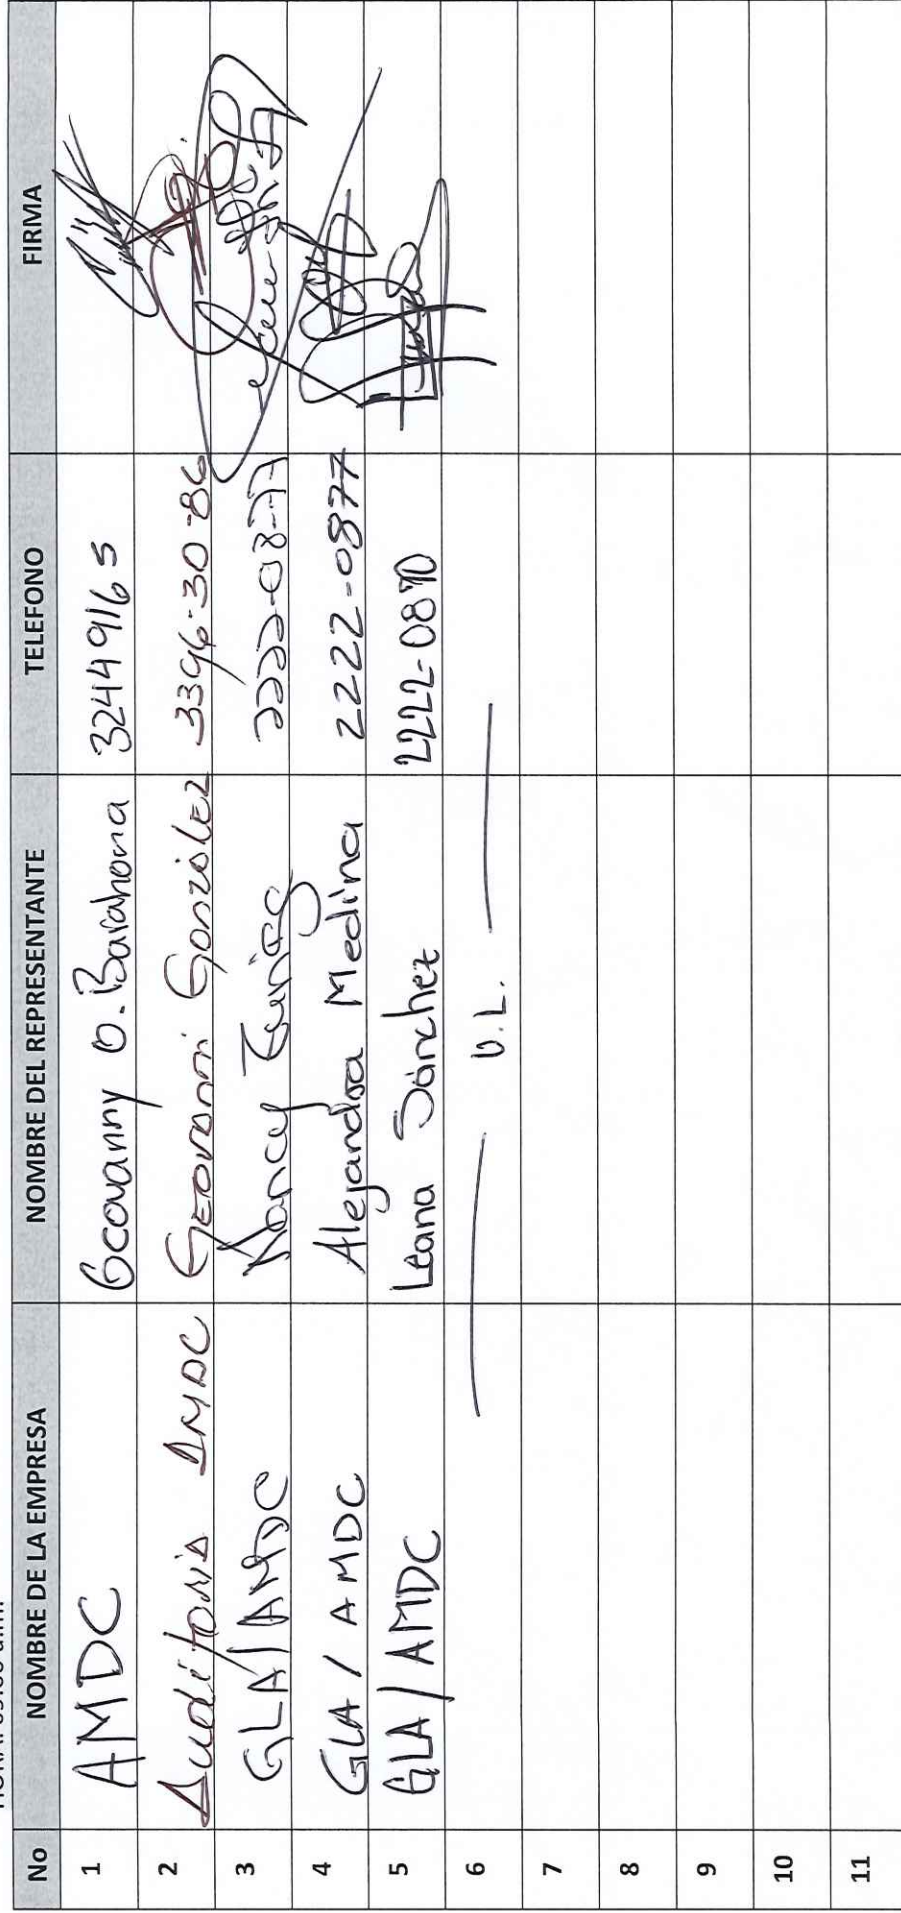 No NOMBRE DE LA EMPRESA NOMBRE DEL REPRESENTANTE TELEFONO FIRMA
1 AMDC Geovanny O. Barahona 32449165
2 Auditoria AMDC Geovanni González 3396-30-86
3 GLA/AMDC Nancy 2222-08-77
4 GLA / AMDC Alejandra Medina 2222-0877
5 GLA/AMDC Leana Sánchez 2222-0870
6 U.L.
7
8
9
10
11